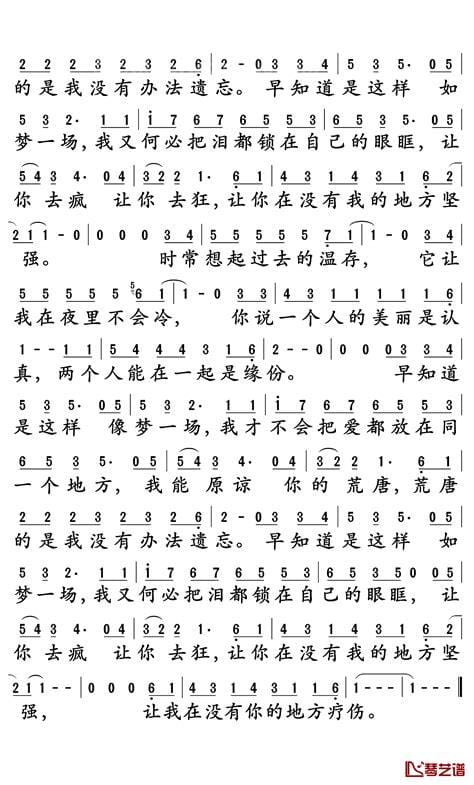 2 2 2 3 2 3 2 6 | 2 - 0 3 3 4 | 5 3 5· 0 5 |
的是我没有办法遗忘。早知道是这样 如
5 3 2· 1 1 | i 7 6 7 6 5 5 3 | 6 5 3 5 0 5 |
梦一场,我又何必把泪都锁在自己的眼眶,让
5 4 3 2· 0 4 | 3 2 2 0 6 1 | 4 3 1 1 1 1 6 1 |
你去疯 让你去狂,让你在没有我的地方坚
2 1 1 - 0 | 0 0 0 3 4 | 5 5 5 5 5 5 7 1 | 1 - 0 5 5 |
强。 时常想起过去的温存, 它让
5 5 5 5 5 6 1 | 1 - 0 3 3 | 4 3 1 1 1 1 1 6 |
我在夜里不会冷, 你说一个人的美丽是认
1 - - 1 1 | 5 4 4 4 4 3 1 6 | 1 - 0 0 | 0 0 0 3 3 4 |
真,两个人能在一起是缘份。 早知道
5 3 5· 0 5 | 5 3 2· 1 1 | i 7 6 7 6 6 5 3 |
是这样 像梦一场,我才不会把爱都放在同
6 5 3 5· 0 5 | 5 4 3 2· 0 4 | 3 2 2 1 0 6 1 |
一个地方, 我能 原谅 你的 荒唐,荒唐
2 2 2 3 2 3 2 6 | 2 - 0 3 3 4 | 5 3 5· 0 5 |
的是我没有办法遗忘。早知道是这样 如
5 3 2· 1 1 | i 7 6 7 6 5 5 3 | 6 5 3 5 0 0 5 |
梦一场,我又何必把泪都锁在自己的眼眶,让
5 4 3 2· 0 4 | 3 2 2 0 6 1 | 4 3 1 1 1 1 6 1 |
你去疯 让你去狂,让你在没有我的地方坚
2 1 1 - 0 | 0 0 0 6 1 | 4 3 1 4 3 1 1 6 | 1 - - - | 1 - - 0 ‖
强, 让我在没有你的地方疗伤。
琴艺谱